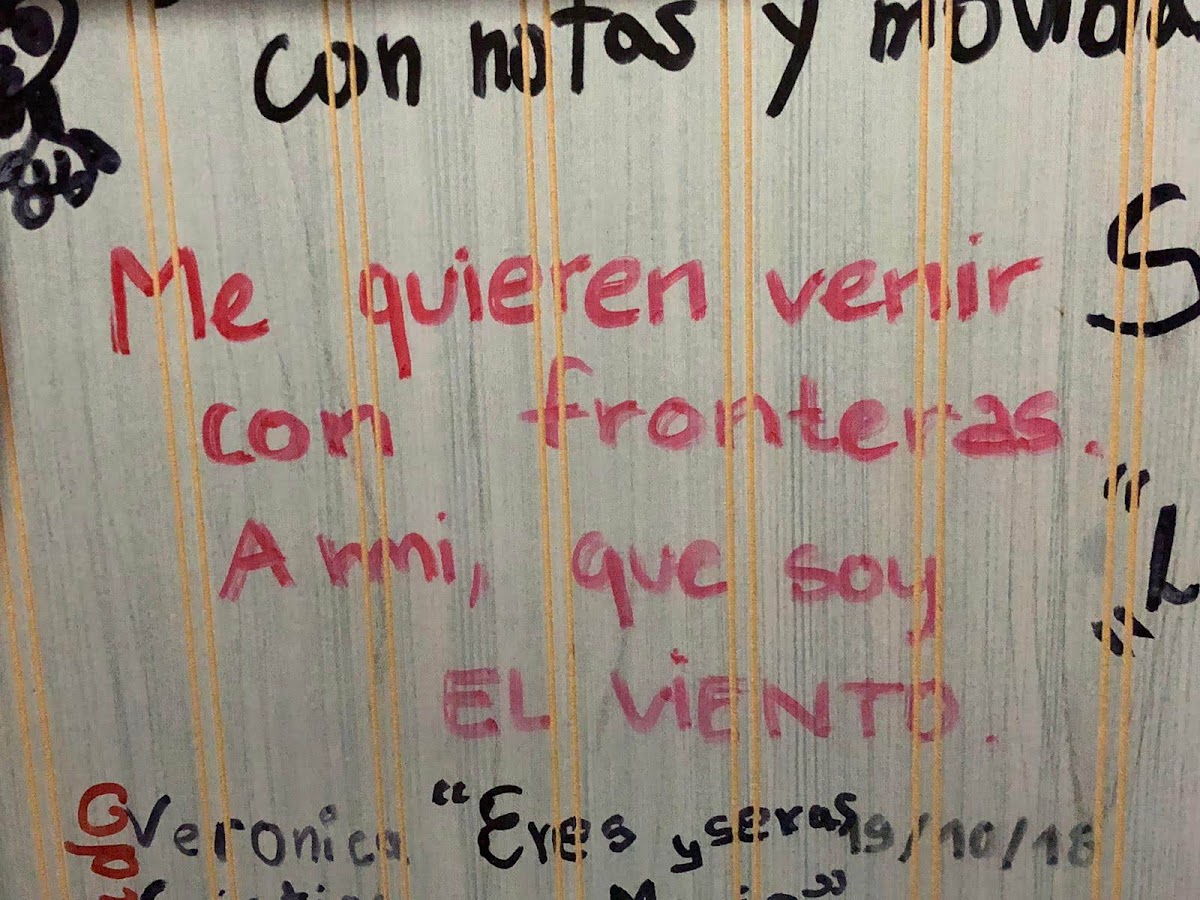 con notas y movida
Me quieren venir
con fronteras.
A mi, que soy
EL ViENTO.
Veronica "Eres y seras 19/10/18